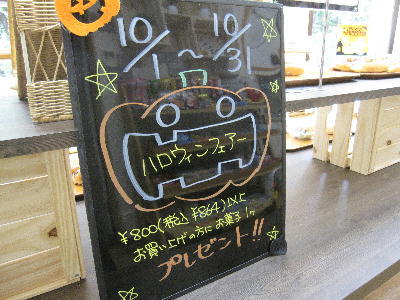 10/1 ～ 10/31
ハロウィンフェアー
¥800(税込¥864)以上
お買い上げの方にお菓子1ケ
プレゼント!!